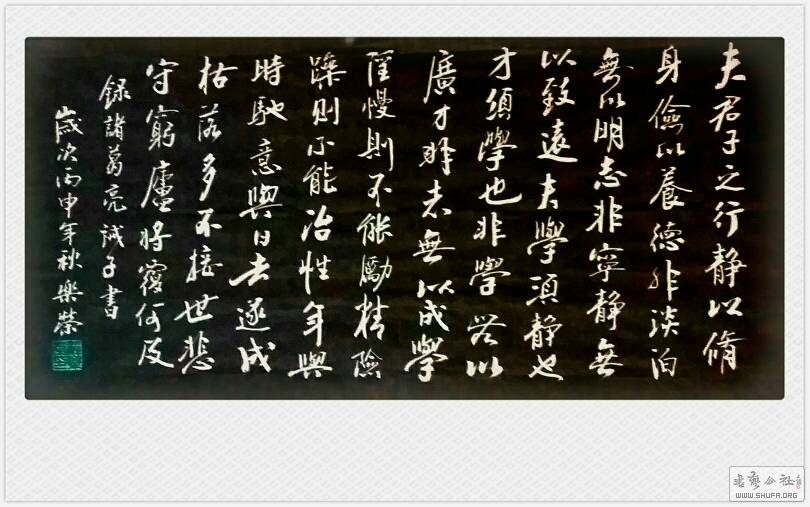 夫君子之行静以脩
身儉以養德非淡泊
無以明志非寧静無
以致遠夫學須静也
才須學也非學無以
廣才非志無以成學
慆慢則不能勵精險
躁則不能冶性年與
時馳意與日去遂成
枯落多不接世悲
守窮廬將復何及
錄諸葛亮誡子書
歲次丙申年秋樂榮
WWW.SHUFA.ORG